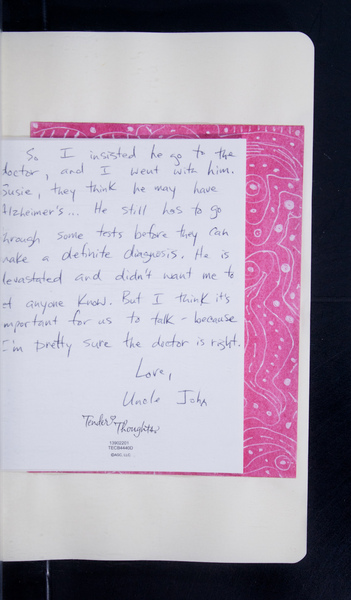 So I insisted he go to the
doctor, and I went with him.
Susie, they think he may have
Alzheimer's... He still has to go
through some tests before they can
make a definite diagnosis. He is
devastated and didn't want me to
let anyone know. But I think it's
important for us to talk - because
I'm pretty sure the doctor is right.
Love,
Uncle John
Tender Thoughts
©AHC, LLC